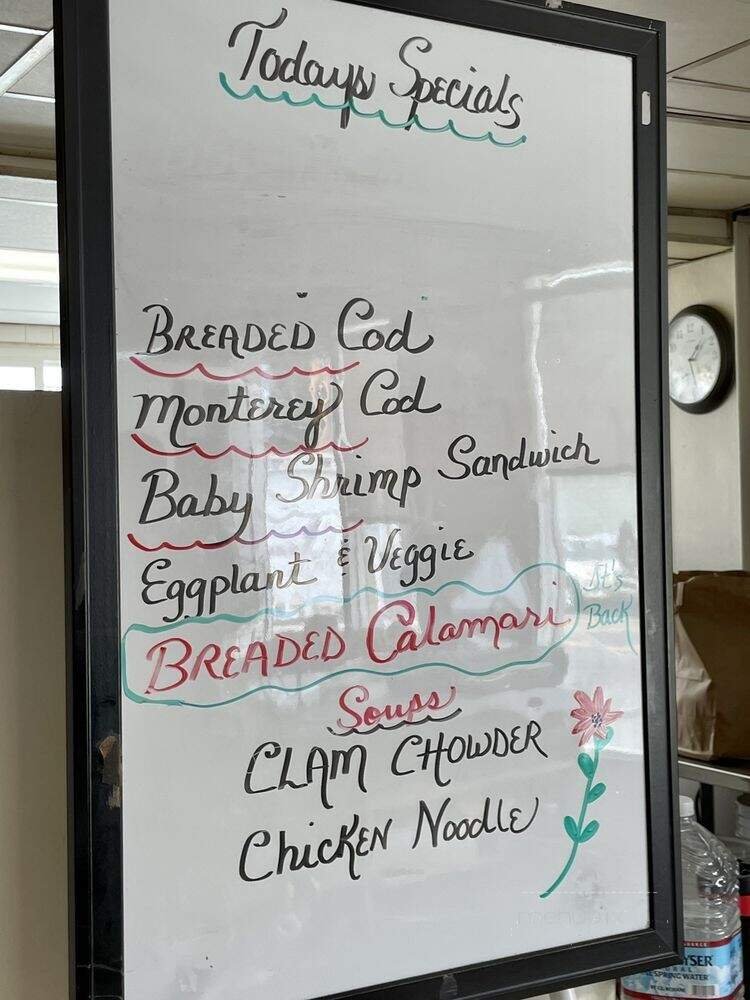 Todays Specials
BREADED Cod
Monterey Cod
Baby Shrimp Sandwich
Eggplant & Veggie
BREADED Calamari
It's
Back
Soups
CLAM CHOWDER
Chicken Noodle
YSER
SPRING WATER